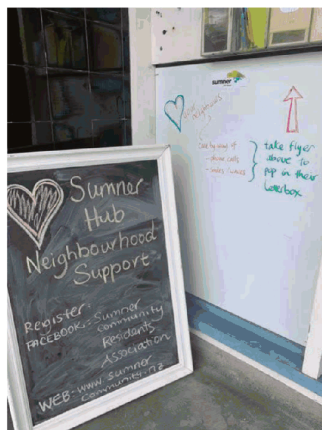 Sumner
Hub
Neighbourhood
Support
Register -
FACEBOOK - Sumner
community
Residents
Association
WEB - www.sumner
community.nz
sumner
take flyer
above to
pop in their
letterbox